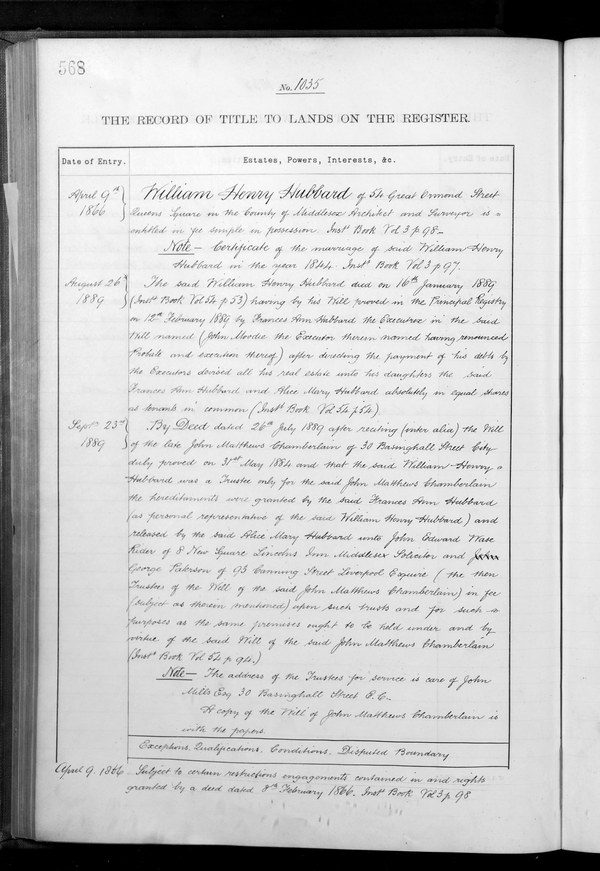 568
No. 1035
THE RECORD OF TITLE TO LANDS ON THE REGISTER.
Date of Entry.
Estates, Powers, Interests, &c.
April 9th 1866
William Henry Hubbard of 54 Great Ormond Street
Queens Square in the County of Middlesex Architect and Surveyor is
entitled in fee simple in possession. Inst Book Vol 3 p 98 —
Note — Certificate of the marriage of said William Henry
Hubbard in the year 1844. Inst Book Vol 3 p 97.
August 26th 1889
The said William Henry Hubbard died on 16th January 1889
(Inst Book Vol 54 p 53) having by his Will proved in the Principal Registry
on 12th February 1889 by Frances Ann Hubbard the Executrix in the said
Will named (John Moodie the Executor therein named having renounced
Probate and execution thereof) after directing the payment of his debts by
the Executors devised all his real estate unto his daughters the said
Frances Ann Hubbard and Alice Mary Hubbard absolutely in equal shares
as tenants in common (Inst Book Vol 54 p 54)
Septr 23rd 1889
By Deed dated 26th July 1889 after reciting (inter alia) the Will
of the late John Matthews Chamberlain of 30 Basinghall Street City
duly proved on 31st May 1884 and that the said William Henry
Hubbard was a Trustee only for the said John Matthews Chamberlain
the hereditaments were granted by the said Frances Ann Hubbard
(as personal representative of the said William Henry Hubbard) and
released by the said Alice Mary Hubbard unto John Edward Wase
Rider of 8 New Square Lincolns Inn Middlesex Solicitor and John
George Paterson of 93 Canning Street Liverpool Esquire (the then
Trustees of the Will of the said John Matthews Chamberlain) in fee
(subject as therein mentioned) upon such trusts and for such
purposes as the same premises ought to be held under and by
virtue of the said Will of the said John Matthews Chamberlain
(Inst Book Vol 54 p 94.)
Note — The address of the Trustees for service is care of John
Mills Esq 30 Basinghall Street E.C.
A copy of the Will of John Matthews Chamberlain is
with the papers.
Exceptions, Qualifications, Conditions, Disputed Boundary
April 9. 1866 - Subject to certain restrictions engagements contained in and rights
granted by a deed dated 8th February 1866. Inst Book Vol 3 p 98